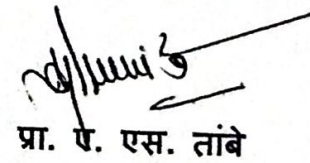 प्रा. ए. एस. तांबे